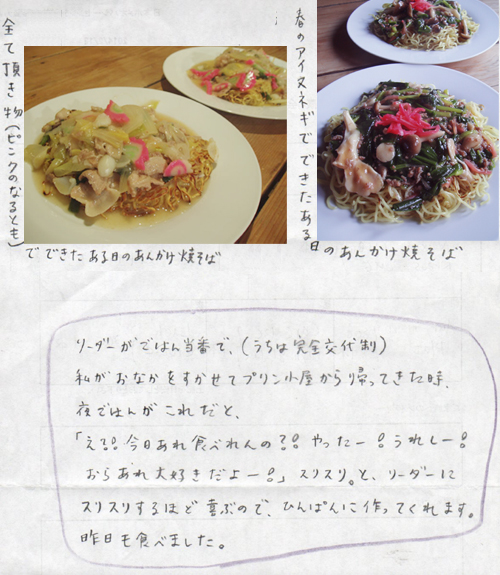 全て頂き物(ピンクのなるとも)
でできたある日のあんかけ焼そば
春のアイヌネギでできたある
日のあんかけ焼そば
リーダーがごはん当番で、(うちは完全交代制)
私がおなかをすかせてプリン小屋から帰ってきた時、
夜ごはんがこれだと、
「え?!今日あれ食べれんの?!やったー!うれしー!
おらあれ大好きだよー!」スリスリ。と、リーダーに
スリスリするほど喜ぶので、ひんぱんに作ってくれます。
昨日も食べました。